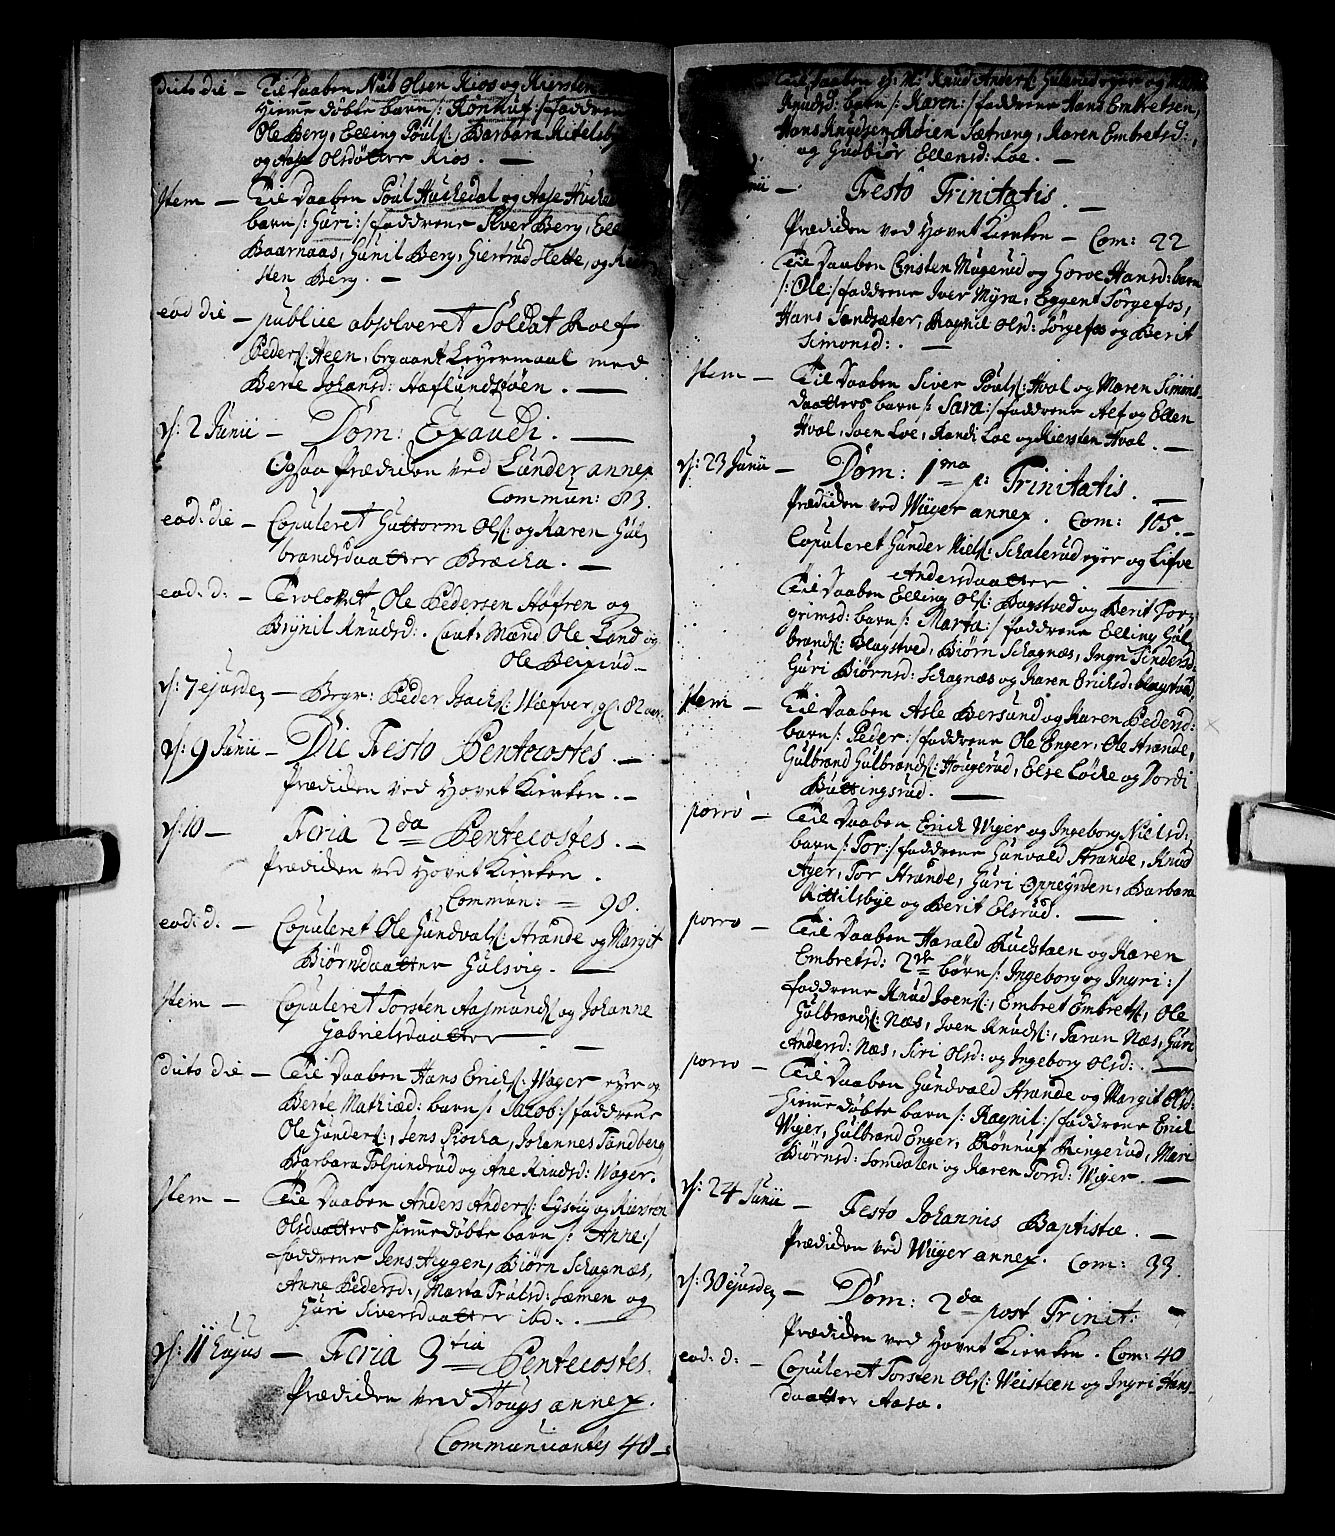 dito die — Til Daaben Nils Olsen Kios og Kiersten
Hiemme døbte barn /: Rønnuf :/ faddrene
Ole Berg, Elling Pouls:, Barbara Kitelsby
og Aase Olsdøtter Kios. —
Item — Til Daaben Poul Huchedal og Aase
barn /: Guri :/ faddrene Siver Berg,
Baarnaas, Gunil Berg, Giertrud Hette, og
sten Berg. —
eod die — publice absolveret Soldat Roef
Peders: Heen, begaaet Leyermaal med
Berte Johansd: Haflundstøen. —
d: 2 Junii — Dom: Exaudi. —
Ogsaa Prædiken ved Lunder annex
Commun: 83.
eod: die — Copuleret Guttorm Ols: og Karen Gul
brandsdaatter Bræcka. —
eod: d: — Trolovet Ole Pedersen Høfren og
Brynil Knudsd:. Caut: Mænd Ole Land og
Ole Beigrud —
d: 7 ejusdem — Begr: Peder Isachs: Wæfver, gl: 82 aar.
d: 9 Junii — Die Festo Pentecostes. —
Prædiken ved Hovet Kircken. —
d: 10 — Feria 2da Pentecostes. —
Prædiken ved Hovet Kircken.
Commun: — 98.
eod: d. — Copuleret Ole Gundvals: Strande og Margit
Biørnsdaatter Gulsvig. —
Item — Copuleret Torsten Aasmunds: og Johanne
Gabrielsdaatter —
dito die — Til Daaben Hans Erichs: Wager eyer og
Berte Mathiæd: barn /: Jacob :/ faddrene
Ole Gunders:, Jens Plocka, Johannes Tandberg
Barbara Tolpindrud og Ane Knudsd: Wager.
Item — Til Daaben Anders Anders: Lystig og Kiersten
Olsdaatters hiemme døbte barn /: Anne :/
faddrene Jens Heggen, Biørn Schagnæs,
Anne Pedersd:, Marta Trulsd: Semen og
Guri Siversdaatter ibd:. —
d: 11 Hujus — Feria 3tia Pentecostes.
Prædiken ved Hougs annex.
Communicantes 40 —
Knudsd: barn /: Karen :/ faddrene Hans Embretsen,
Hans Knudsen, Röien Sætrang, Karen Embretsd:,
og Gudbiør Ellensd: Loe. —
Junii — Festo Trinitatis. —
Prædiken ved Hovet Kircken — Com: 22
Til Daaben Cristen Mugerud og Goroe Hansd: barn
/: Ole :/ faddrene Iver Myra, Eggent Sørgefos,
Hans Sandsæter, Ragnil Olsd: Sørgefos og Berit
Simonsd:. —
Item — Til Daaben Siver Pouls: Hval og Maren Simens
daatters barn /: Sara :/ faddrene Alf og Ellen
Hval, Joen Loe, Randi Loe og Kiersten Hval. —
d: 23 Junii — Dom: 1ma p: Trinitatis. —
Prædiken ved Wiiger annex. Com: 105. —
Copuleret Gunder Niels: Schalerud eyer og Lisve
Andersdaatter —
Til Daaben Elling Ols: Bagstved og Berit Tor
grimsd: barn /: Marta :/ faddrene Elling Gul
brands: Bagstved, Biørn Schagnæs, Ingri Sindersd:
Guri Biørnsd: Schagnæs og Karen Erichsd: Bagstved,
Item — Til Daaben Asle Bersund og Karen Pedersd:
barn /: Peder :/ faddrene Ole Enger, Ole Strande,
Gulbrand Gulbrands: Hougerud, Else Løcke og Jordi
Buttingsrud. —
porro — Til Daaben Erich Wiger og Ingeborg Nielsd:
barn /: Tor :/ faddrene Gunvald Strande, Knud
Ager, Tor Strande, Guri Oppegyden, Barbara
Kittilsbye og Berit Elsrud. —
porro — Til Daaben Harald Rudstæen og Karen
Embretsd: 2de børn /: Ingeborg og Ingri :/
faddrene Knud Joens:, Embret Embrets:, Ole
Gulbrands: Næs, Joen Knuds:, Taran Næs, Guri
Andersd: Næs, Siri Olsd: og Ingeborg Olsd:. —
porro — Til Daaben Gundvald Strande og Margit Olsd:
hiemme døbte barn /: Ragnil :/ faddrene Erich
Wiger, Gulbrand Enger, Rønnuf Ringerud, Mari
Biørnsd: Somdalen og Karen Torsd: Wiger. —
d: 24 Junii — Festo Johannis Baptistæ. —
Prædiken ved Wiiger annex. Com: 33.
d: 30 ejusdem — Dom: 2da post Trinit: —
Prædiken ved Hovet Kircken. Com: 40
eod: d: — Copuleret Torsten Ols: Weistæen og Ingri Hans
daatter Aasa.